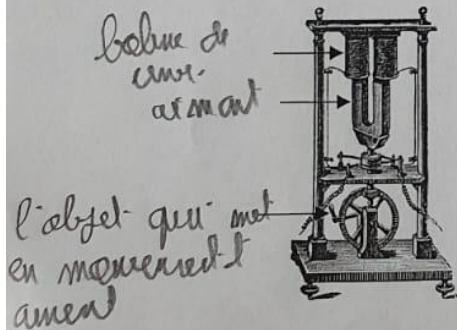 bobine de
cuivre
aimant
l'objet qui met
en mouvement l
aimant